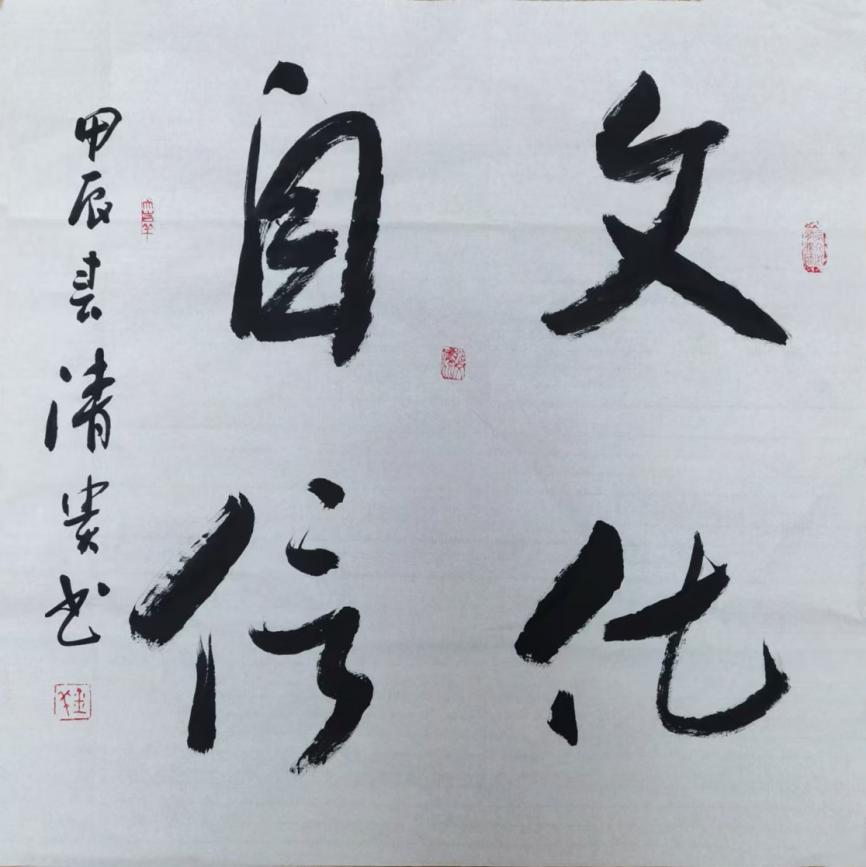 文化
自信
甲辰春清贵书